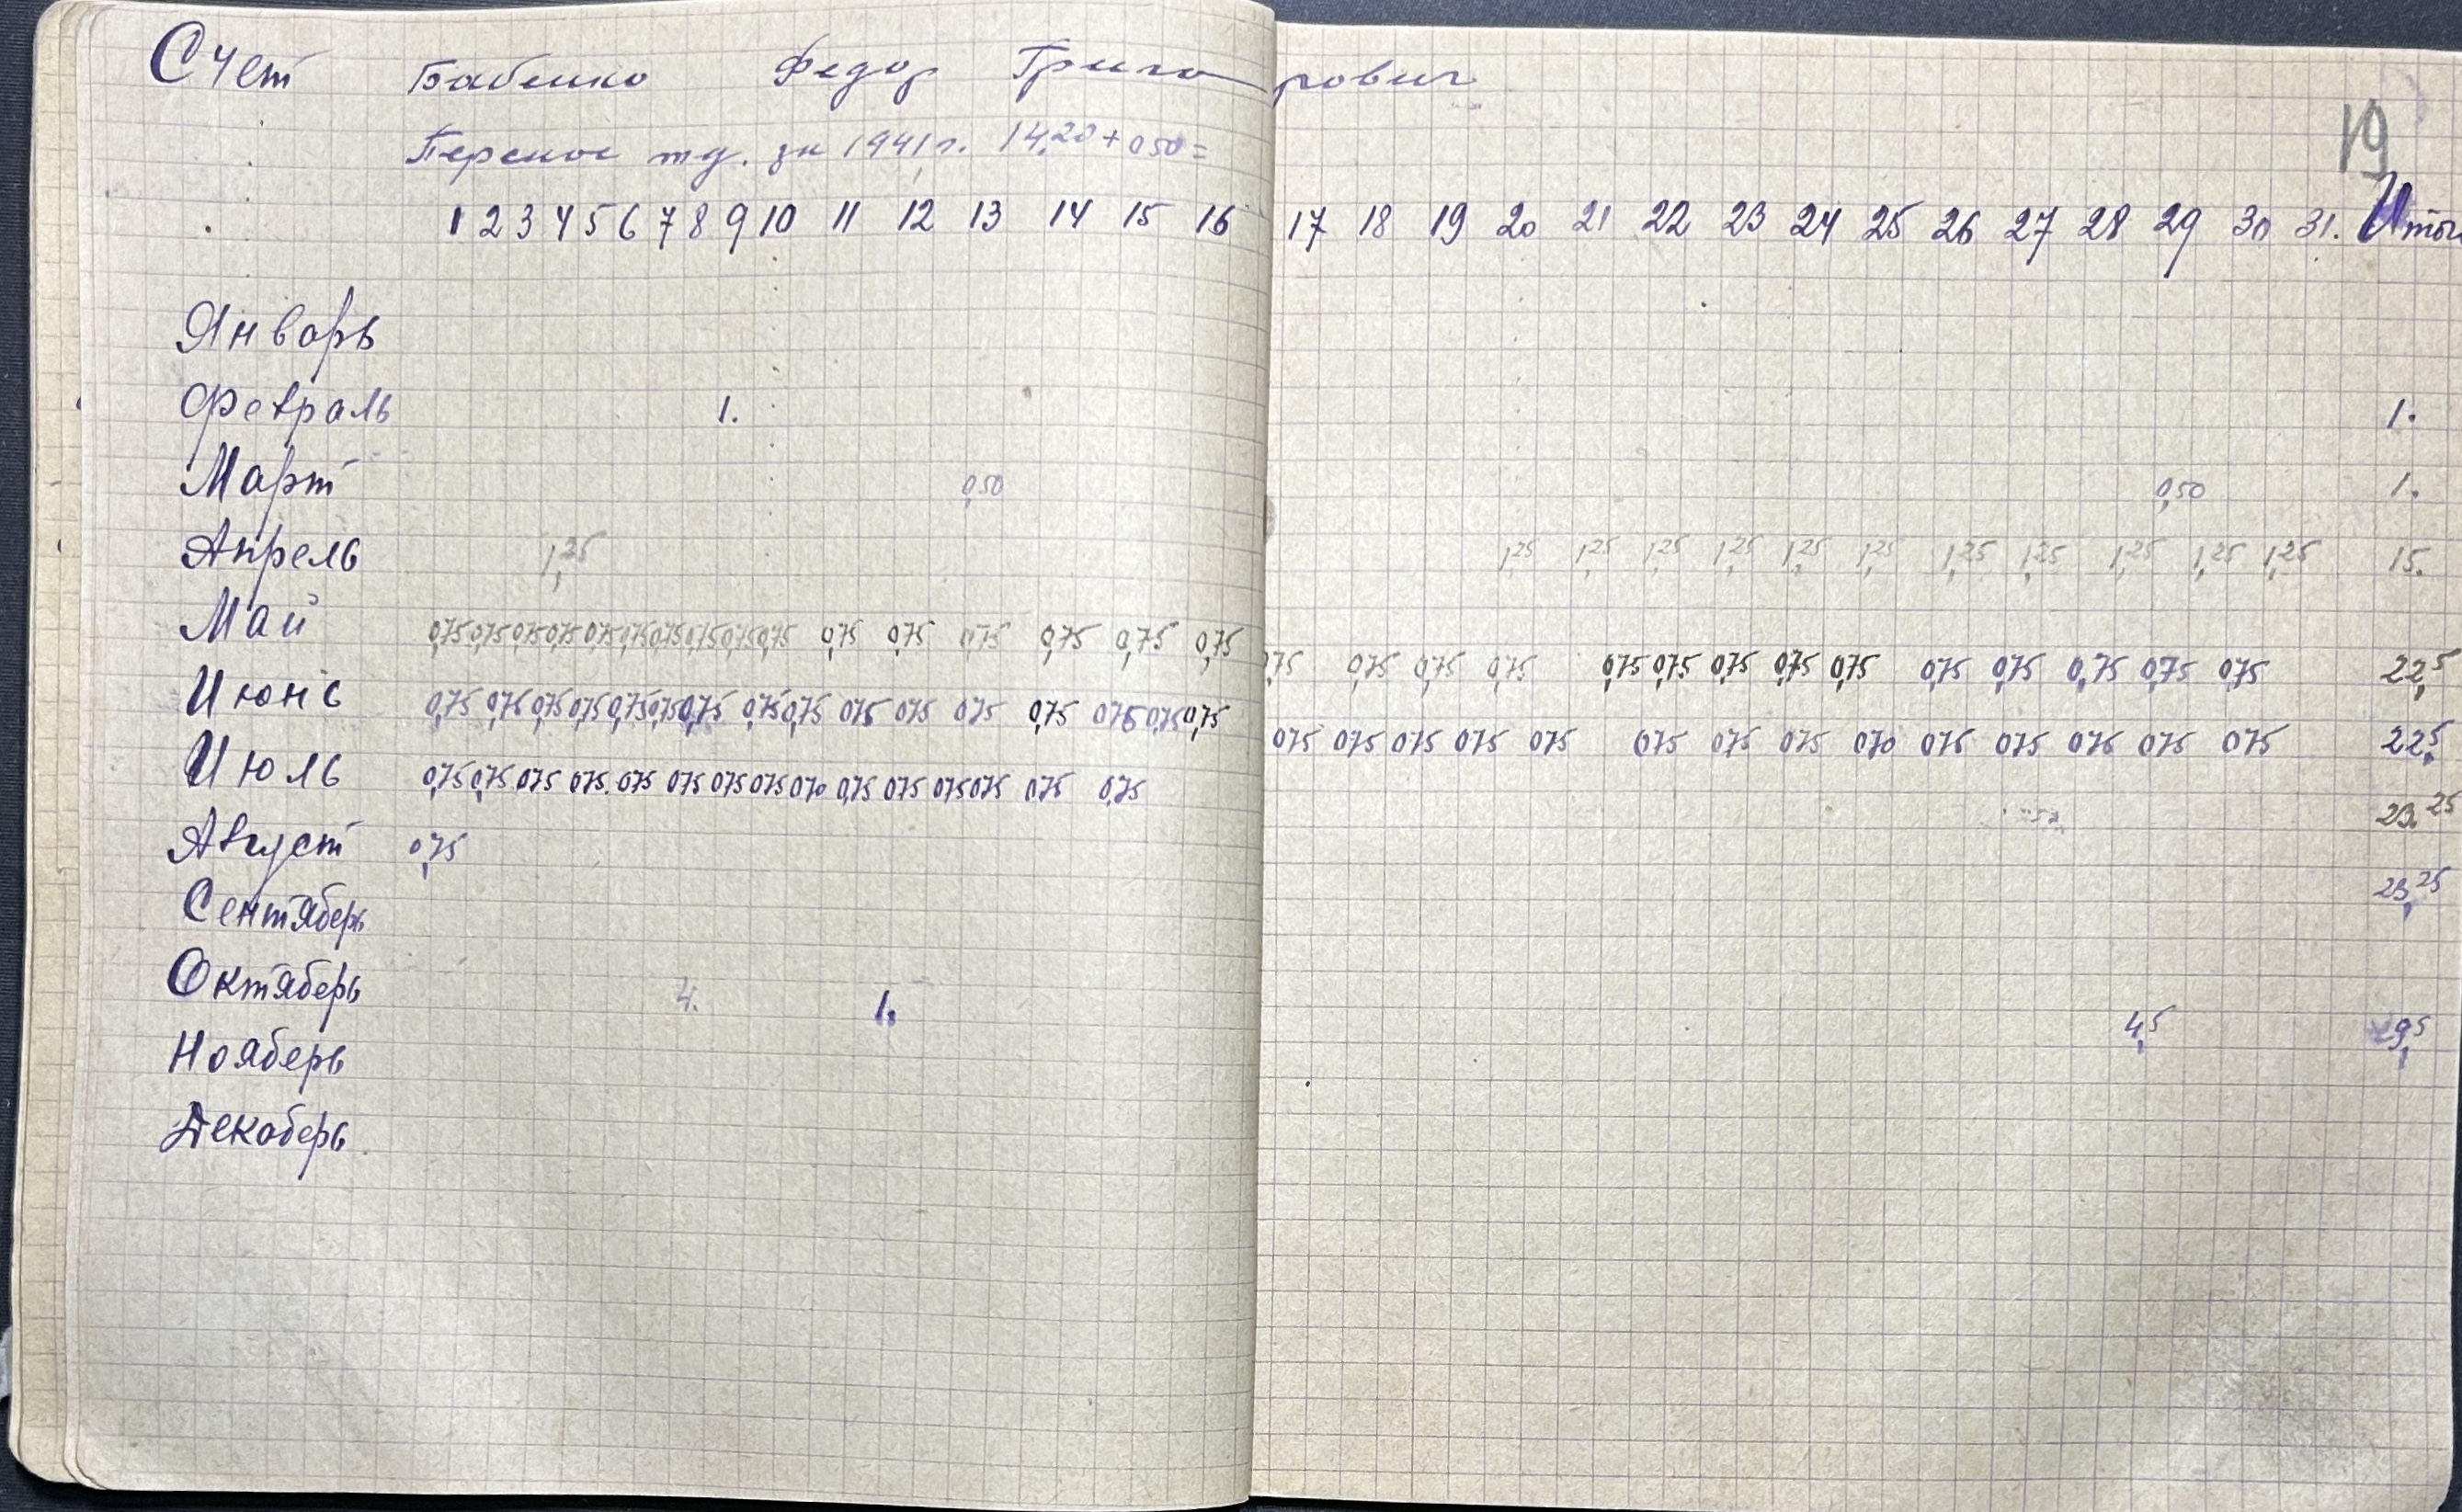 Счет Бабенко Федор Григорович
Перенос тд. за 1941 г. 14,20 + 0 50 =
19
1 2 3 4 5 6 7 8 9 10 11 12 13 14 15 16 17 18 19 20 21 22 23 24 25 26 27 28 29 30 31. Итого
Январь
Февраль 1. 1.
Март 0,50 0,50 1.
Апрель 1,25 1,25 1,25 1,25 1,25 1,25 1,25 1,25 1,25 1,25 1,25 1,25 15.
Май 0,75 0,75 0,75 0,75 0,75 0,75 0,75 0,75 0,75 0,75 0,75 0,75 0,75 0,75 0,75 0,75 0,75 0,75 0,75 0,75 0,75 0,75 0,75 0,75 0,75 0,75 0,75 0,75 0,75 0,75 22,5
Июнь 0,75 0,75 0,75 0,75 0,75 0,75 0,75 0,75 0,75 075 075 075 0,75 075 0,75 0,75 075 075 075 075 075 075 075 075 070 075 075 075 075 075 22,5
Июль 0,75 0,75 075 075. 075 075 075 075 070 0,75 075 075 075 075 0,75 23,25
Август 0,75 23,25
Сентяберь
Октяберь 4. 1. 4,5 9,5
Нояберь
Декаберь